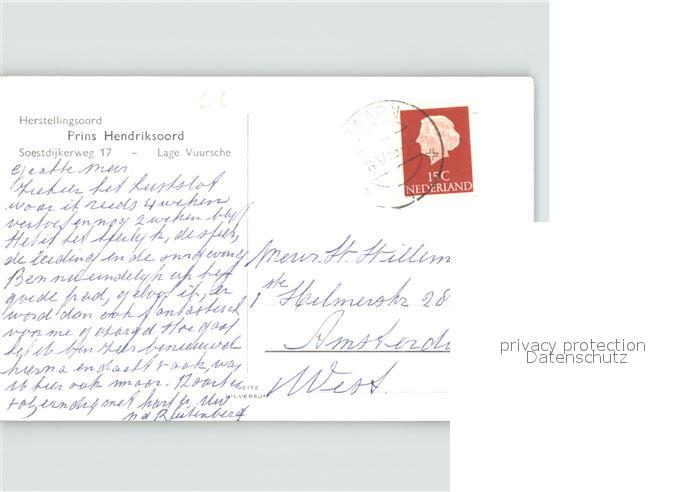 Herstellingsoord
Prins Hendriksoord
Soestdijkerweg 17 – Lage Vuursche
Geachte Mevr
Ziehier het lustslot
waar ik reeds 4 weken
vertoef en nog 2 weken blijf
Het is het heerlijk, de sfeer,
de leiding en de omgeving
Ben nu eindelijk op het
goede pad, geloof ik, er
word dan ook fantastisch
voor me gezorgd Hoe gaat
het ik ben zeer benieuwd
hierna en dacht vaak, was
ik hier ook maar.
met hart gr. Uw
BAARN
15C
NEDERLAND
Mevr. H. Willem
1ste Helmerstr 28
Amsterd
West.
HILVERSUM
privacy protection
Datenschutz